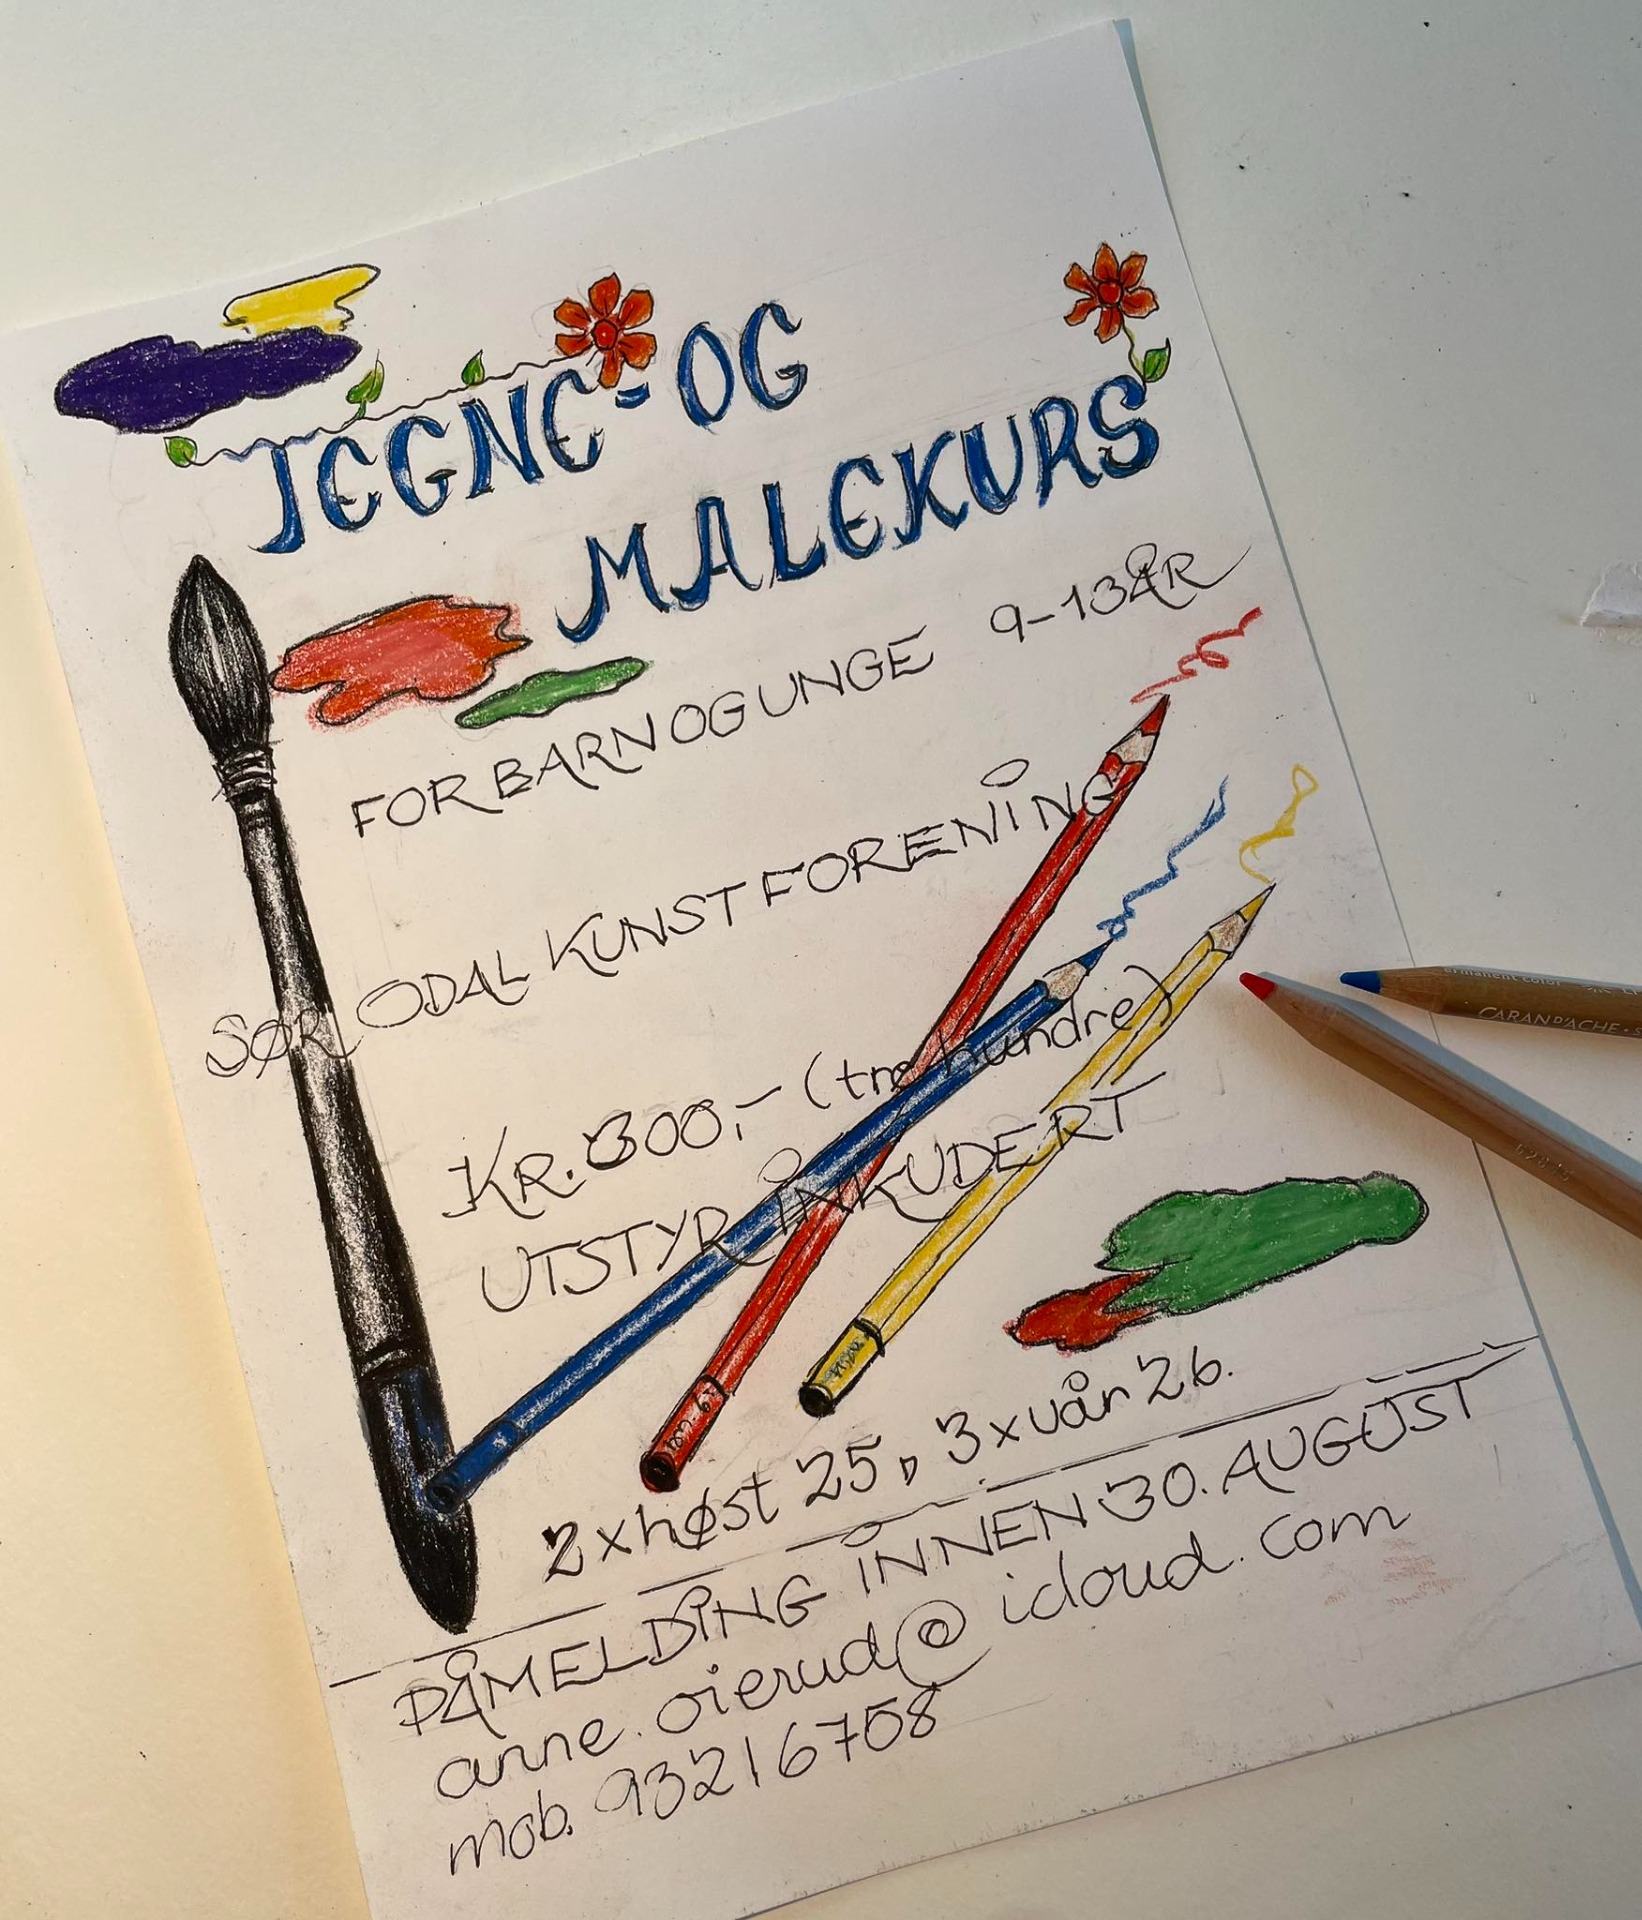 TEGNE-OG
MALEKURS
FOR BARN OG UNGE 9-13ÅR
SØR ODAL KUNSTFORENING
KR. 300,- (tre hundre)
UTSTYR INKUDERT
2 x høst 25, 3 x vår 26.
PÅMELDING INNEN 30. AUGUST
anne.oierud@icloud.com
mob. 93216758
CARAN D'ACHE